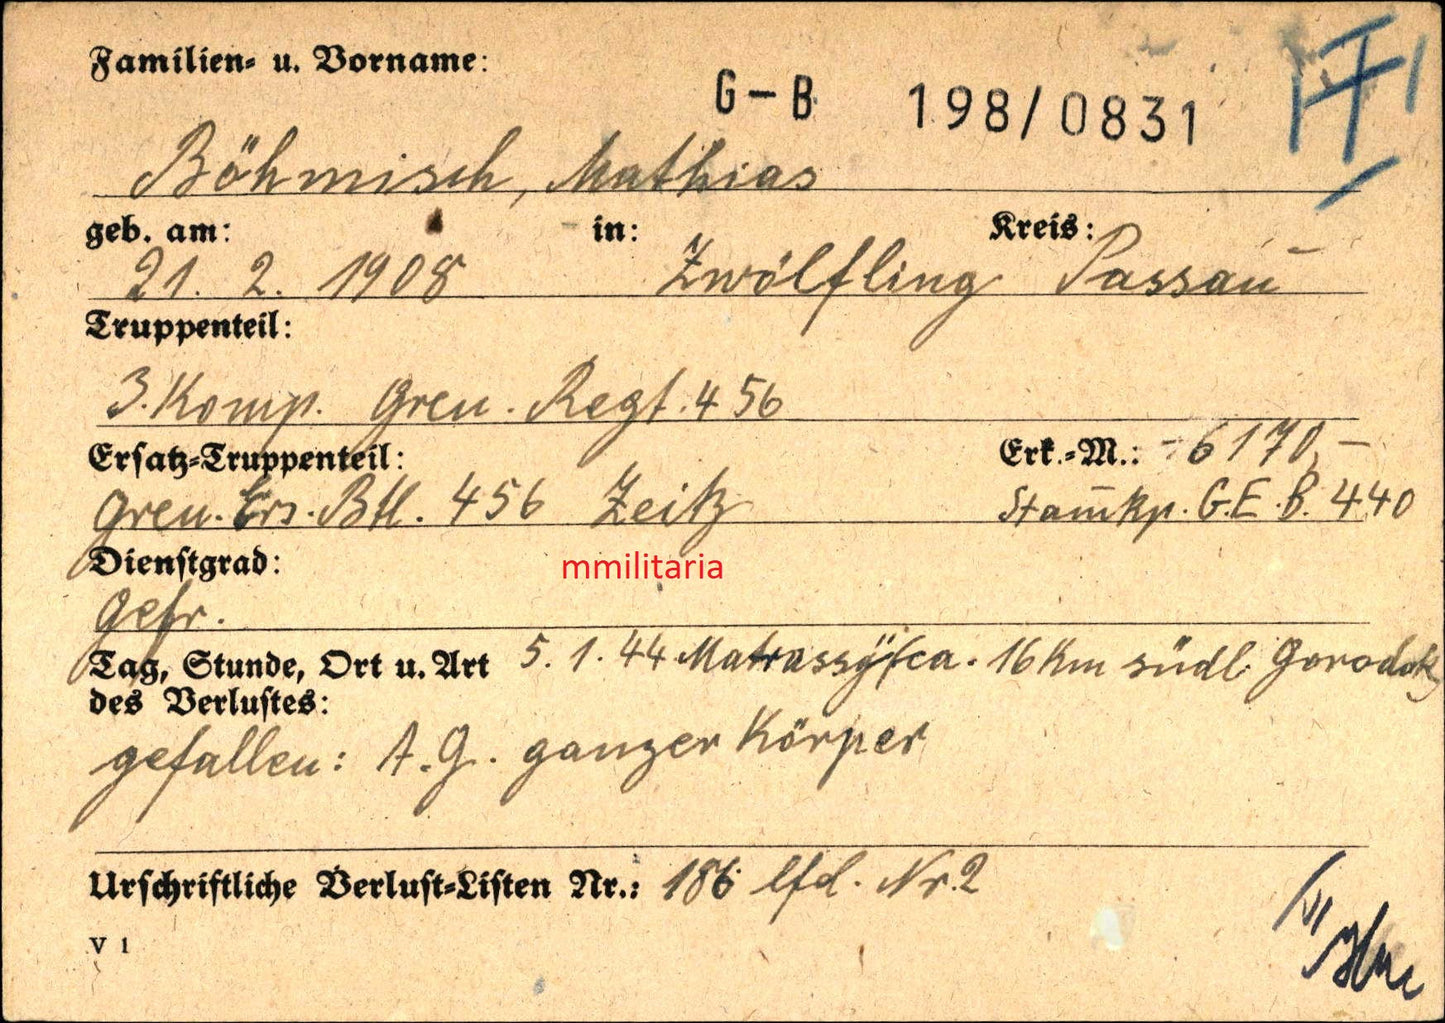 Familien- u. Vorname:
G-B 198/0831
Böhmisch, Mathias
geb. am: in: Kreis:
21. 2. 1908 Zwölfling Passau
Truppenteil:
3. Komp. Gren. Regt. 456
Ersatz-Truppenteil: Erk.-M.: -6170-
Gren. Ers. Btl. 456 Zeitz Stam̄kp. G.E.B. 440
Dienstgrad:
mmilitaria
Gefr.
Tag, Stunde, Ort u. Art 5. 1. 44 ca. 16 Km südl. Gorodok
des Verlustes:
gefallen: A.G. ganzer Körper
Urschriftliche Verlust-Listen Nr.: 186 lfd. Nr. 2
V 1